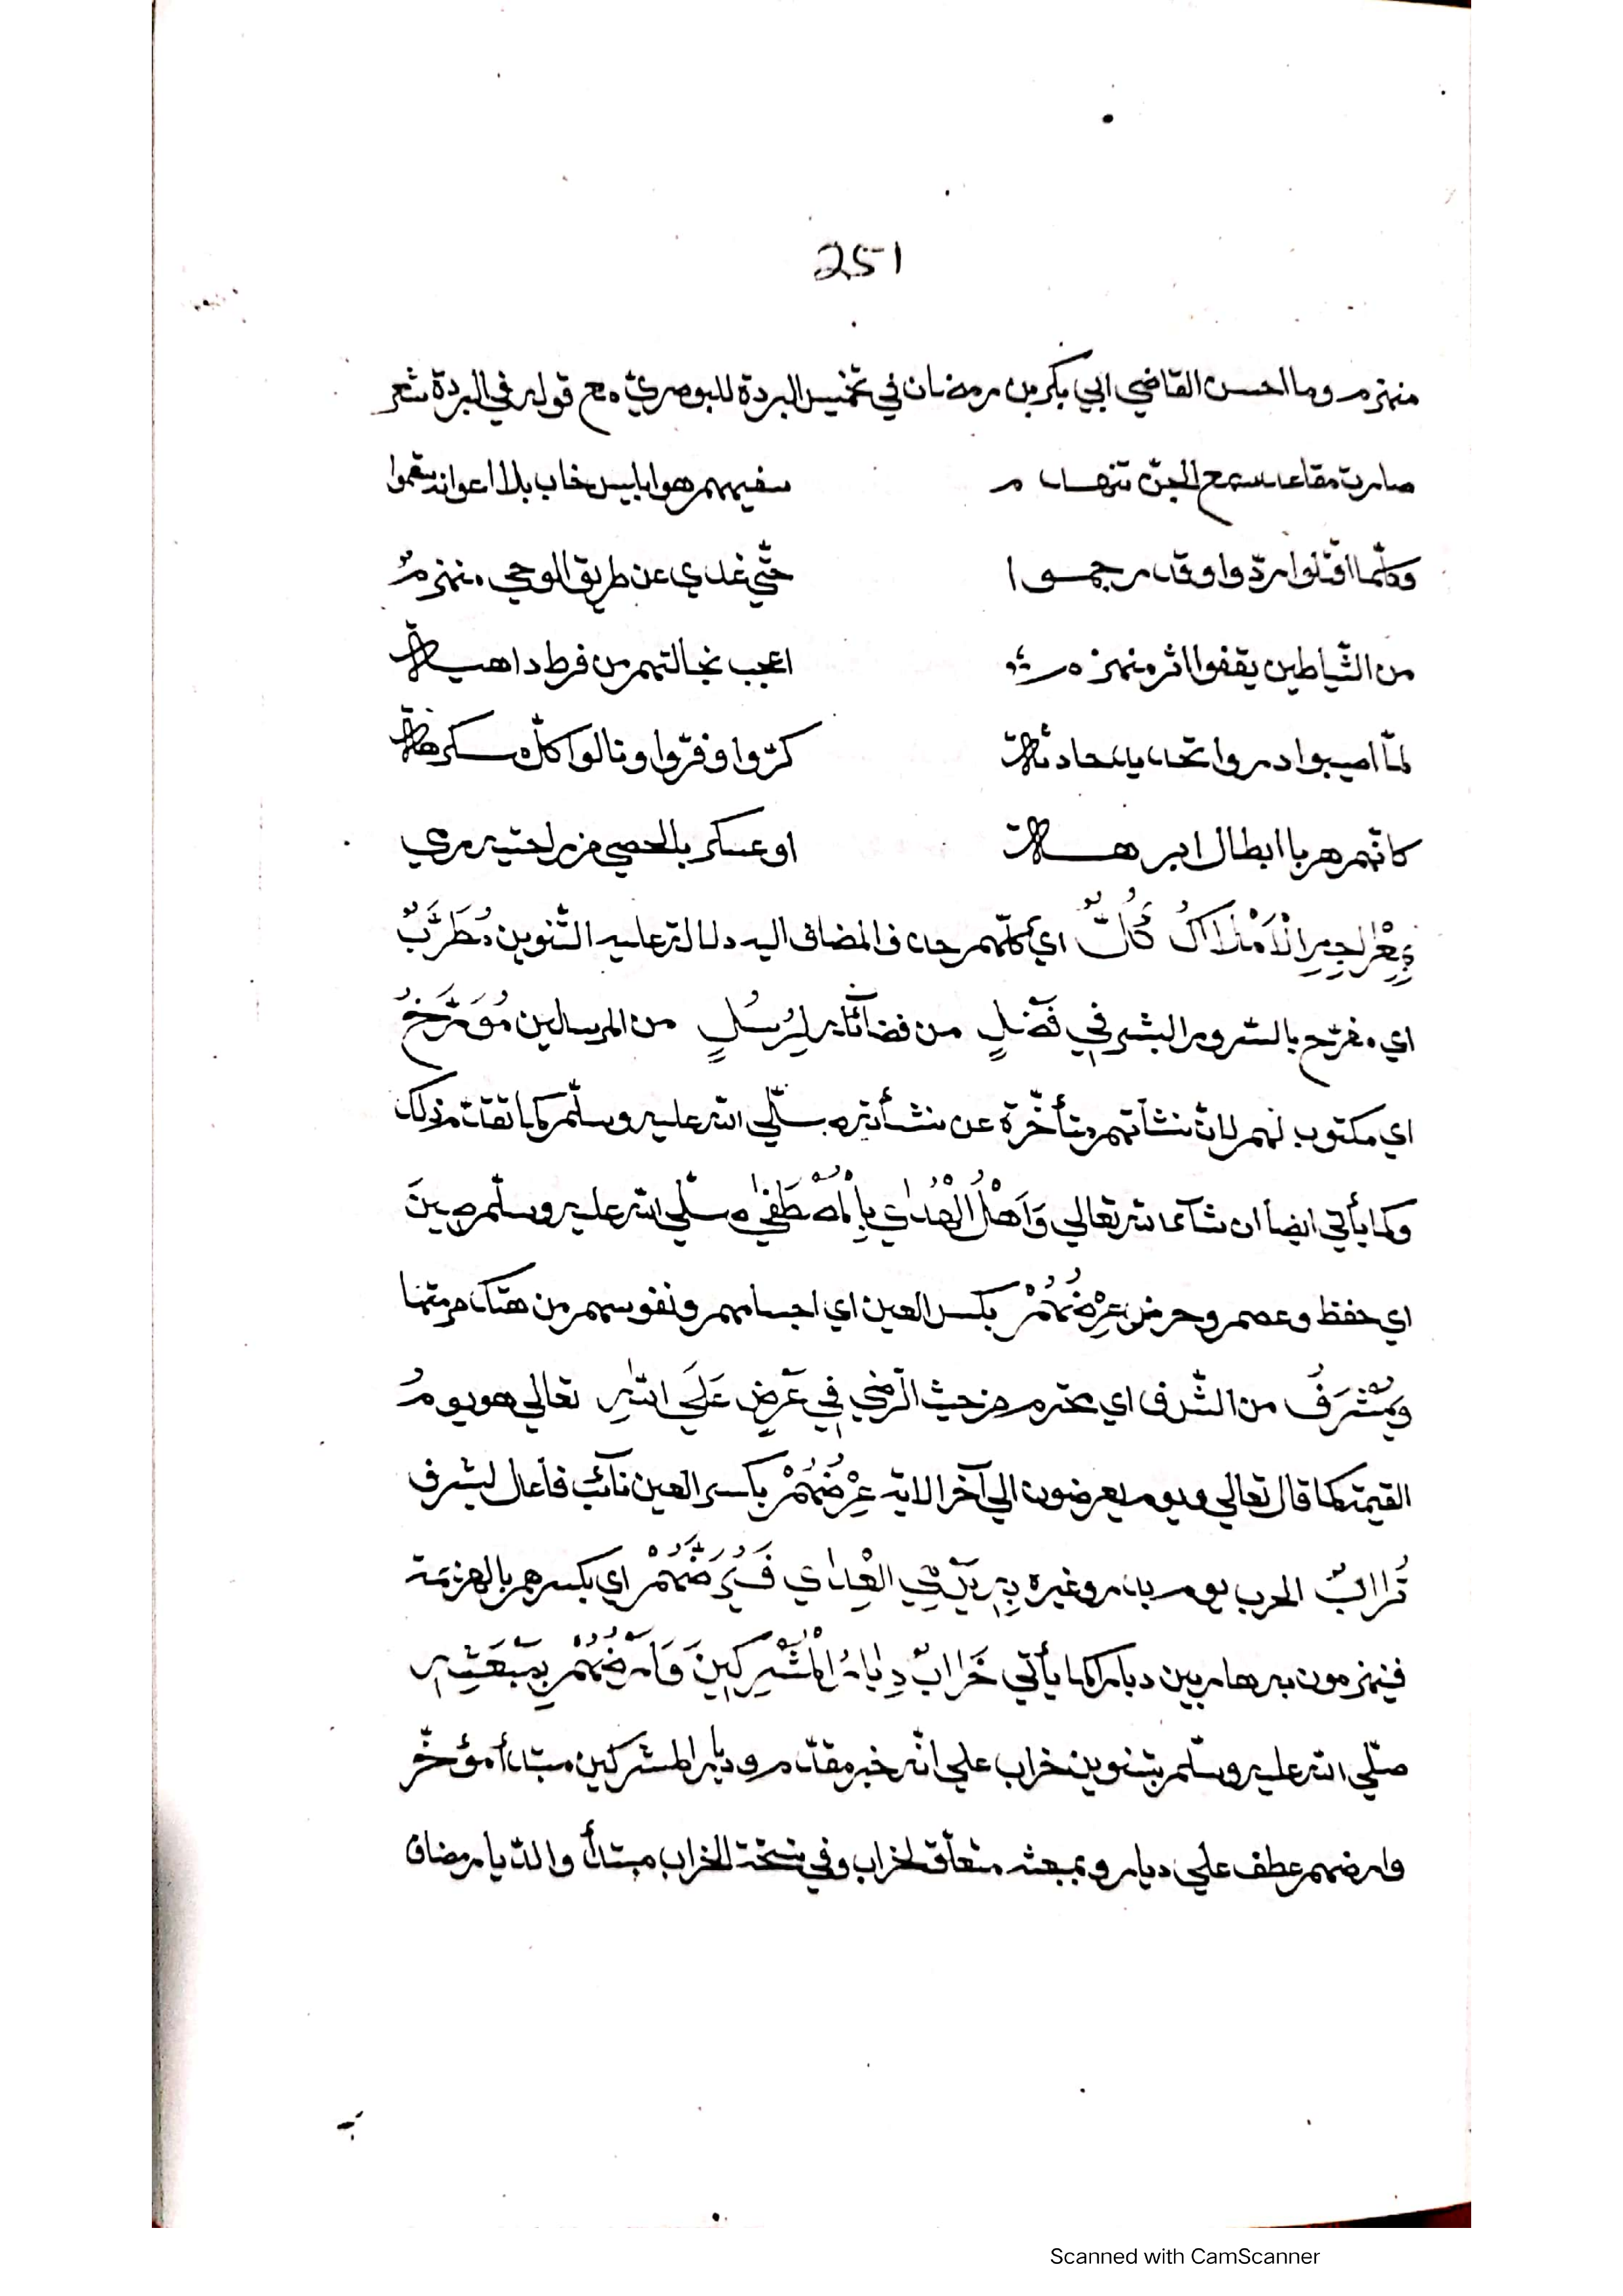 251
منهزم وما احسن القاضي ابي بكر بن رمضان في تخميس البردة للبوصري مع قوله في البردة شعر
صارت مقاعد سمع الجنّ تنهد م سفيههم هو ابليس خاب بلا اعوانه سقموا
وكلّما اقبلوا ردّوا وقد رجمــوا حتّي غدي عن طريق الوحي منهزمٌ
من الشّياطين يقفوا اثر منهزم اعجب بحالتهم من فرط داهيــة
لمّا اصيبوا دمروا تحديد حادثة كرّوا وفرّوا ونالوا كلّ مسكرهة
كانّهم هربا ابطال ابرهــة او عسكر بالحصي من راحتيه رمي
الْاَمْلَاكُ كُلٌّ اي كلّهم حذف المضاف اليه دلالة عليه التّنوين مُطَرَّبٌ
اي مفرّح بالسّرور البشر فِي فَضْلٍ من فضائله لِرُسُلٍ من المرسلين مُؤَرَّخُ
اي مكتوب لهم لانّ نشأتهم متأخّرة عن نشأته صلّي الله عليه وسلّم كما تقدّم ذلك
وكما يأتي ايضا ان شآء الله تعالي وَاَهْلُ الْهُدٰي بِالْمُصْطَفٰي صلّي الله عليه وسلّم صِينَ
اي حفظ وعصم وحرض عِرْضُهُمْ بكسر العين اي اجسامهم ونفوسهم من هتك حرمتها
وَيُشْرَفُ من الشّرف اي يحترم من حيث الرّضي فِي عَرْضٍ عَلَي اللهِ تعالي هو يومُ
القيمة كما قال تعالي ويوم يعرضون الي آخر الاية عِرْضُهُمْ بكسر العين نآئب فاعل ليشرف
الحرب يوم بدر وغيره الْعِدٰي فَيُرَضُّهُمْ اي يكسرهم بالهزيمة
فينهزمون به هاربين دبارا كما يأتي خَرَابٌ دِيَارُ الْمُشْرِكِينَ وَاَرْضُهُمْ بِمَبْعَثِهِ
صلّي الله عليه وسلّم بتنوين خراب علي انّه خبر مقدّم وديار المشركين مبتدأ مؤخّر
وارضهم عطف علي ديار وبمبعثه متعلّق لخراب وفي نسخة الخراب مبتدأ والدّيار مضاف
Scanned with CamScanner